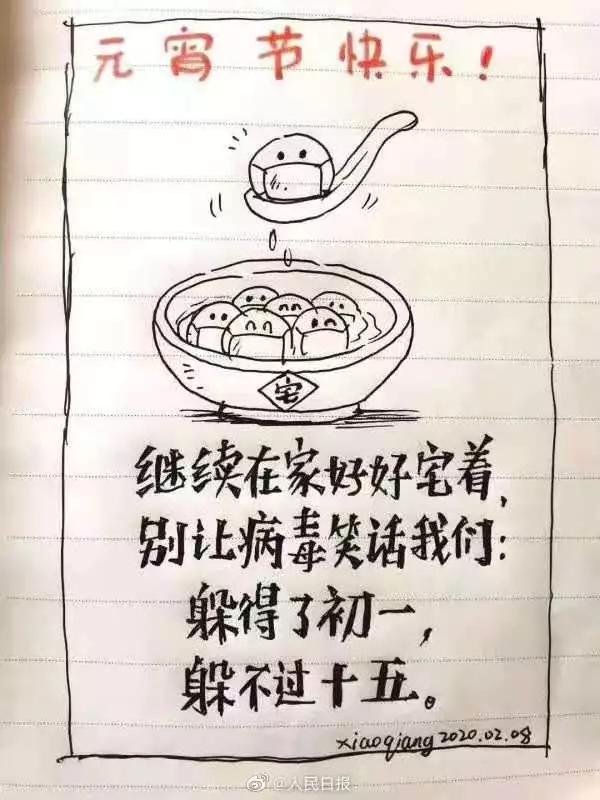 元宵节快乐！
宅
继续在家好好宅着，
别让病毒笑话我们：
躲得了初一，
躲不过十五。
xiaoqiang 2020.02.08
@人民日报